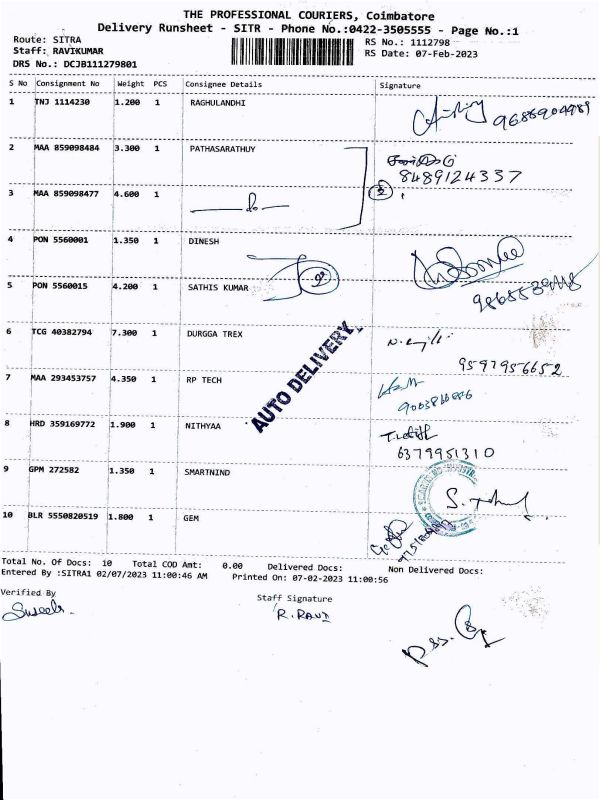 THE PROFESSIONAL COURIERS, Coimbatore
Delivery Runsheet - SITR - Phone No.:0422-3505555 - Page No.:1
Route: SITRA
RS No.: 1112798
Staff: RAVIKUMAR
RS Date: 07-Feb-2023
DRS No.: DCJB111279801
S No Consignment No Weight PCS Consignee Details Signature
1 TNJ 1114230 1.200 1 RAGHULANDHI
2 MAA 859098484 3.300 1 PATHASARATHUY
8489124337
3 MAA 859098477 4.600 1 — do —
4 PON 5560001 1.350 1 DINESH
5 PON 5560015 4.200 1 SATHIS KUMAR
6 TCG 40382794 7.300 1 DURGGA TREX
9597956652
AUTO DELIVERY
7 MAA 293453757 4.350 1 RP TECH
8 HRD 359169772 1.900 1 NITHYAA
6379951310
9 GPM 272582 1.350 1 SMARTNIND
10 BLR 5550820519 1.800 1 GEM
Total No. Of Docs: 10 Total COD Amt: 0.00 Delivered Docs: Non Delivered Docs:
Entered By :SITRA1 02/07/2023 11:00:46 AM Printed On: 07-02-2023 11:00:56
Verified By
Staff Signature
R. RAVI